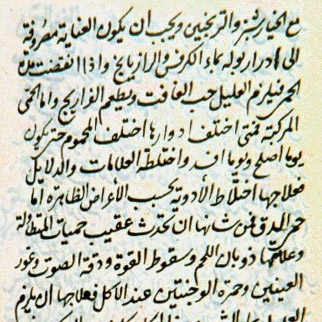 مع الخيار شنبر والترنجبين ويجب ان يكون العناية مصروفة
الى ادرار بوله بماء الكرفس والرازيانج واذا انقضت
الحمى فيلزم العليل حب الغافت ويطعم الفراريج واما الحمى
المركبة فمتى اختلف ادوارها اختلف المحموم حتى يكون
يوما اصلح ويوما واختلطة العلامات والدلايل
فعلاجها اختلاط الأدوية بحسب الأعراض الظاهرة اما
حمى الدق فمن شانها ان تحدث عقيب حميات المتطاولة
وعلامتها ذوبان اللحم وسقوط القوة ودقة الصوت وغور
العينين وحمرة الوجنتين عند الأكل فعلاجها ان يلزم